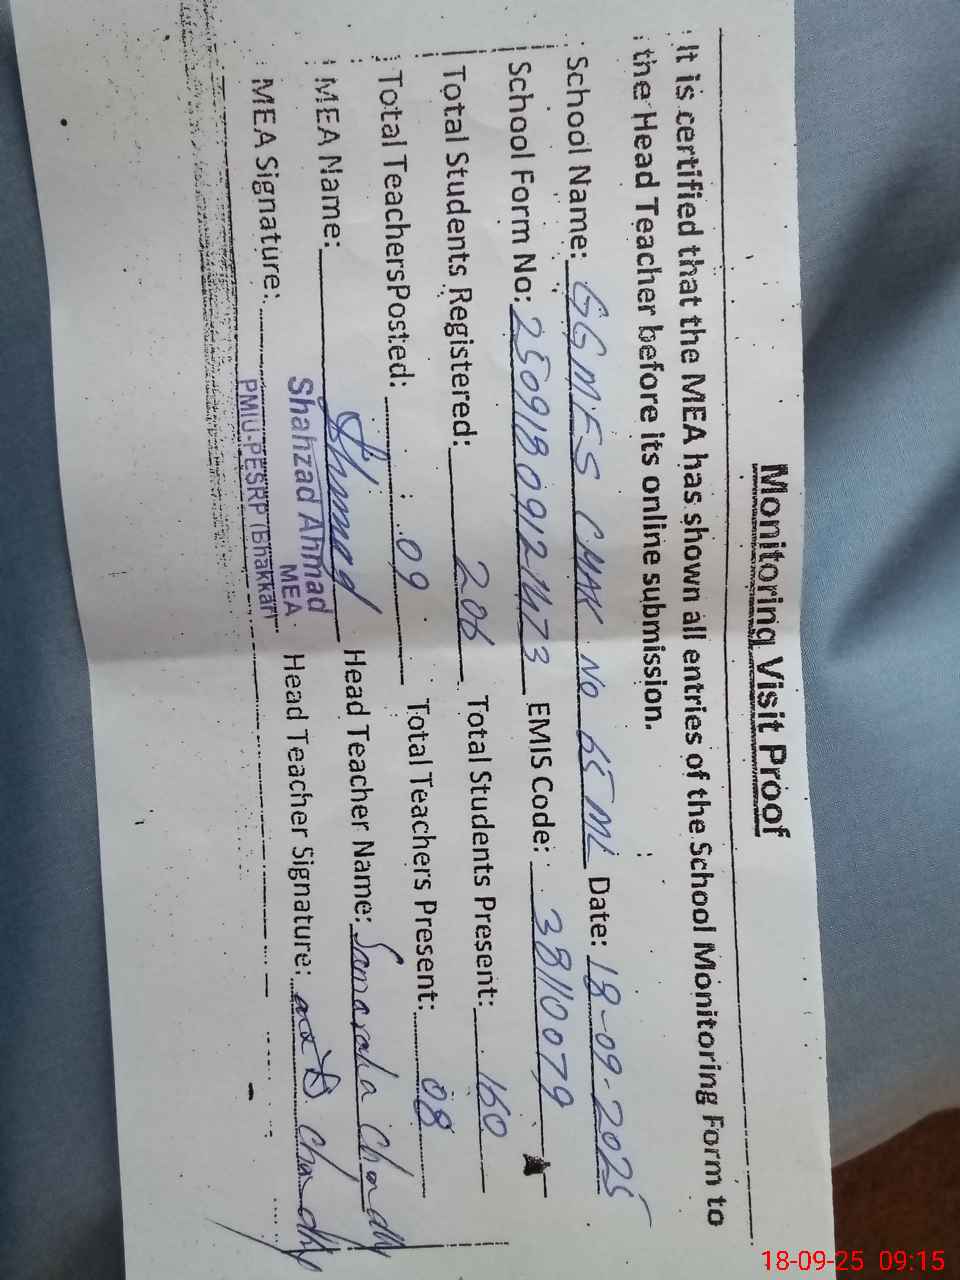 Monitoring Visit Proof
It is certified that the MEA has shown all entries of the School Monitoring Form to
the Head Teacher before its online submission.
School Name: GGMES CHAK No 65 ML Date: 18-09-2025
School Form No: 2509180912 EMIS Code: 38110079
Total Students Registered: 206 Total Students Present: 160
Total TeachersPosted: 09 Total Teachers Present: 08
MEA Name: Ahmad Head Teacher Name: Chaudhry
Shahzad Ahmad
MEA
MEA Signature: PMIU-PESRP (Bhakkar) Head Teacher Signature:
18-09-25 09:15